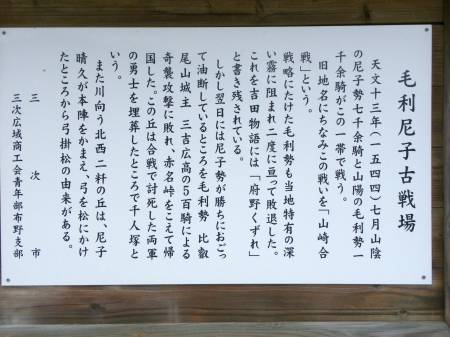 毛利尼子古戦場
天文十三年(一五四四)七月山陰
の尼子勢七千余騎と山陽の毛利勢一
千余騎がこの一帯で戦う。
旧地名にちなみこの戦いを「山崎合
戦」という。
戦略にたけた毛利勢も当地特有の深
い霧に阻まれ二度に亘って敗退した。
これを吉田物語には「府野くずれ」
と書き残されている。
しかし翌日には尼子勢が勝ちにおごっ
て油断しているところを毛利勢 比叡
尾山城主 三吉広高の5百騎による
奇襲攻撃に敗れ、赤名峠をこえて帰
国した。この丘は合戦で討死した両軍
の勇士を埋葬したところで千人塚と
いう。
また川向う北西二粁の丘は、尼子
晴久が本陣をかまえ、弓を松にかけ
たところから弓掛松の由来がある。
三次市
三次広域商工会青年部布野支部